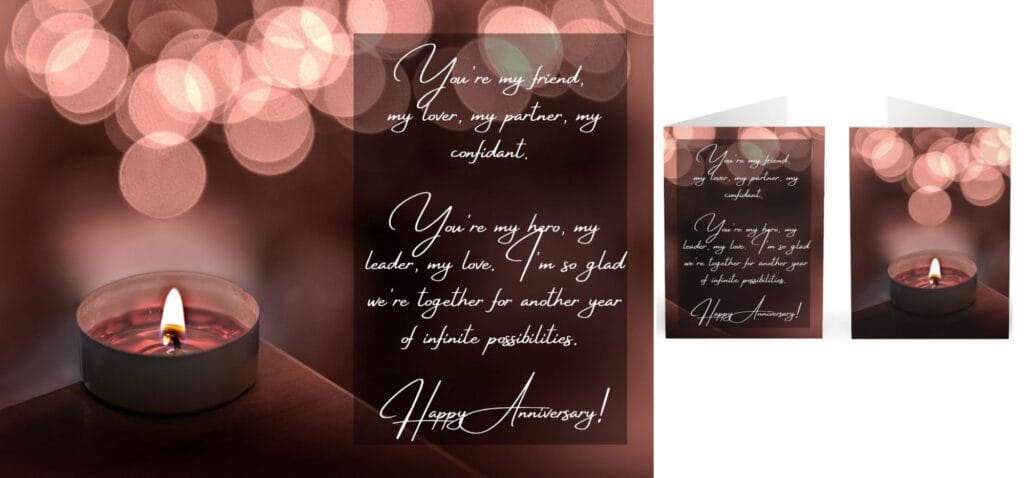 You're my friend,
my lover, my partner, my
confidant.
You're my hero, my
leader, my love. I'm so glad
we're together for another year
of infinite possibilities.
Happy Anniversary!
You're my friend,
my lover, my partner, my
confidant.
You're my hero, my
leader, my love. I'm so glad
we're together for another year
of infinite possibilities.
Happy Anniversary!